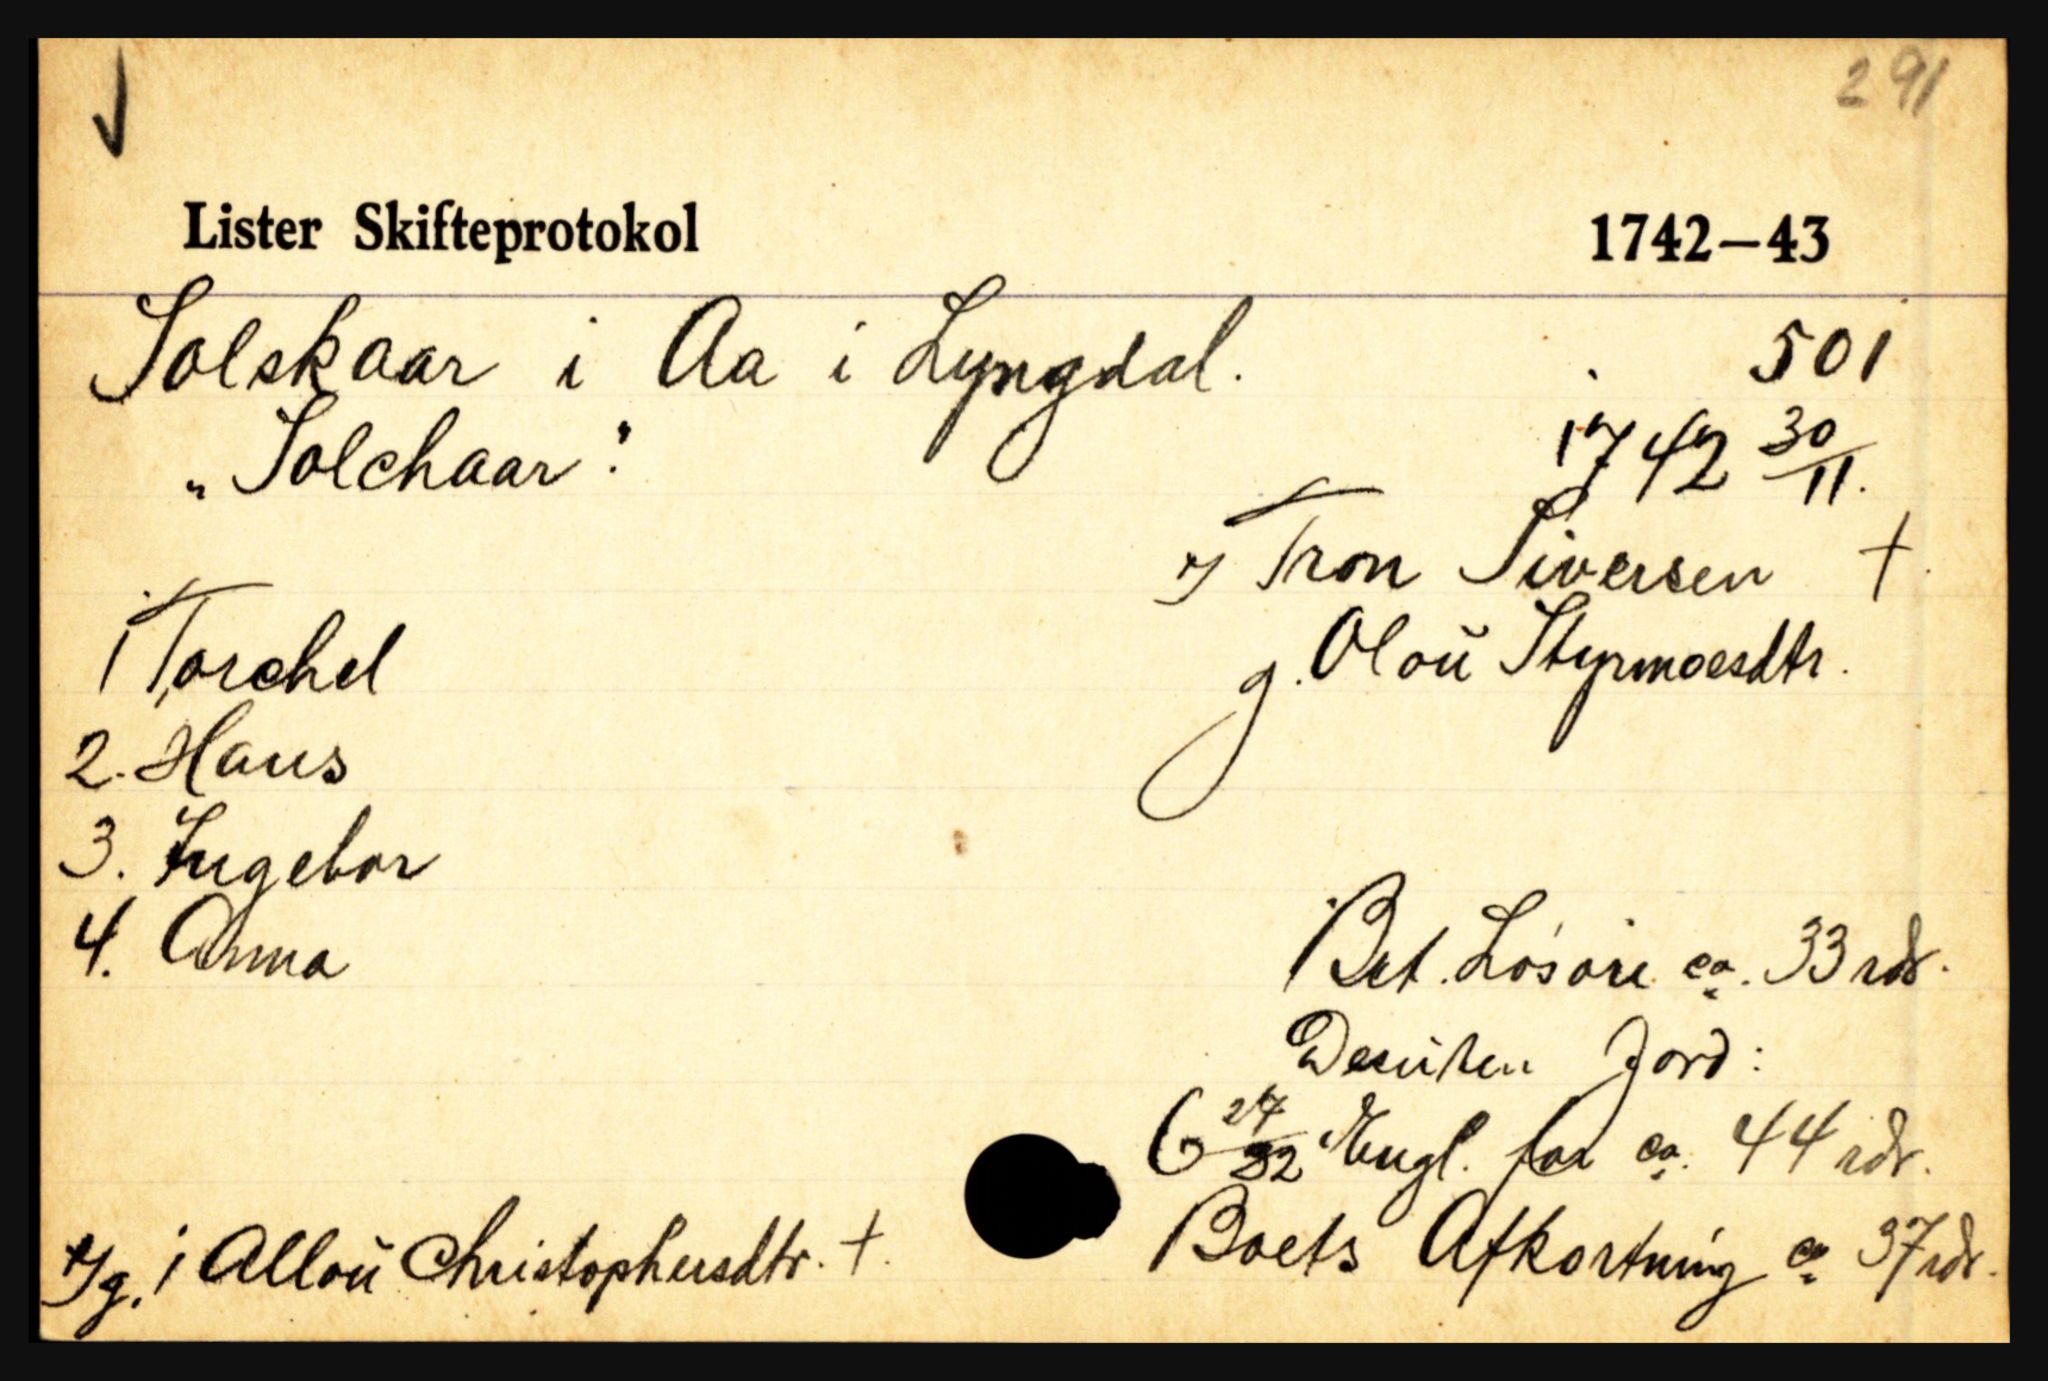 291
Lister Skifteprotokol 1742–43
Solskaar i Aa i Lyngdal. 501
"Solchaar": 1742 30/11.
*) Tron Siversen †.
g. Oloŭ Styrmoesdtr.
1 Torchel
2. Hans
3. Ingebor
4. Anna
Bet. Løsøre ca. 33 rdr.
Desuten Jord:
6 27/32 Engl. for ca. 44 rdr.
Boets Afkortning ca 37 rdr.
*) g. 1 Alloŭ Christophersdtr. †.